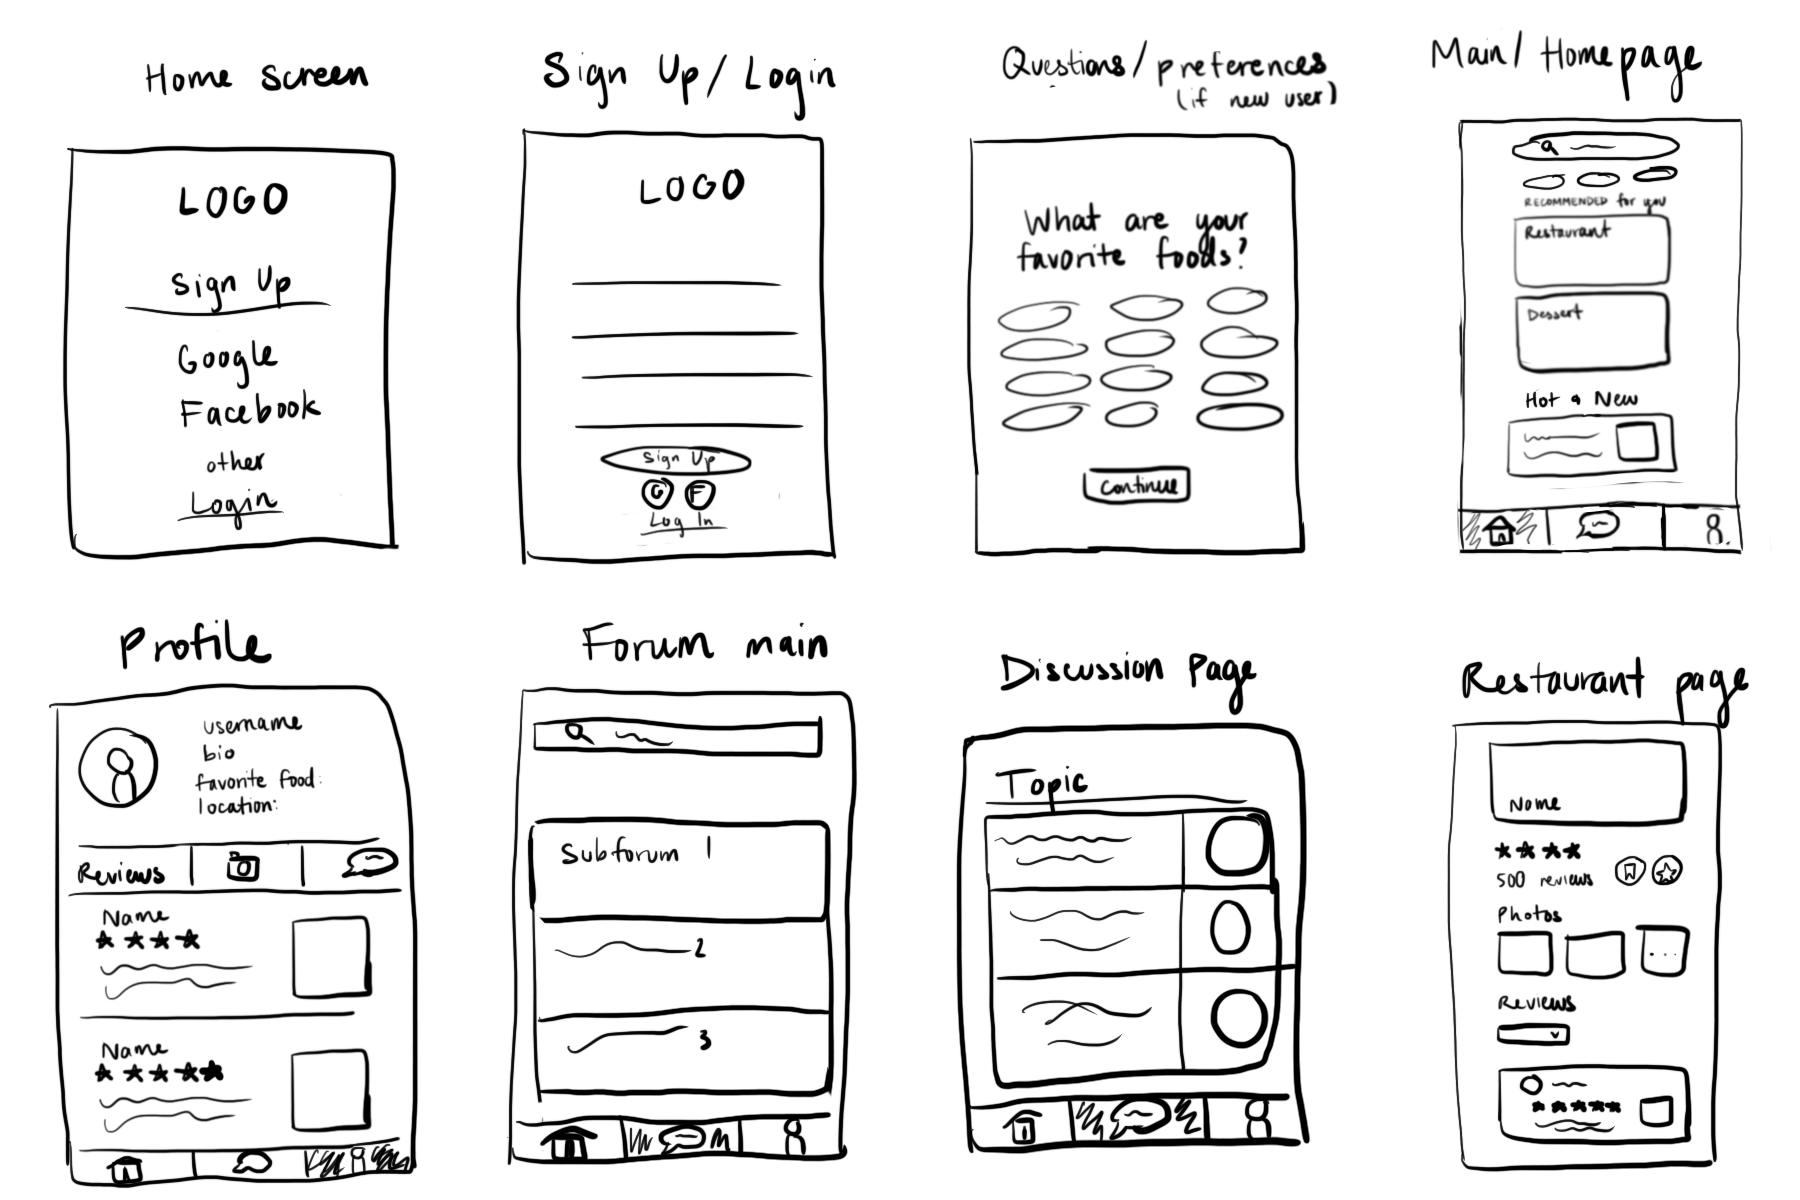 Home Screen
LOGO
Sign Up
Google
Facebook
other
Login
Sign Up / Login
LOGO
Sign Up
G F
Log In
Questions / preferences
(if new user)
What are your
favorite foods?
Continue
Main / Homepage
RECOMMENDED for you
Restaurant
Dessert
Hot & New
Profile
username
bio
favorite food:
location:
Reviews
Name
Name
Forum main
Subforum 1
2
3
Discussion Page
Topic
Restaurant page
Name
500 reviews
Photos
...
Reviews